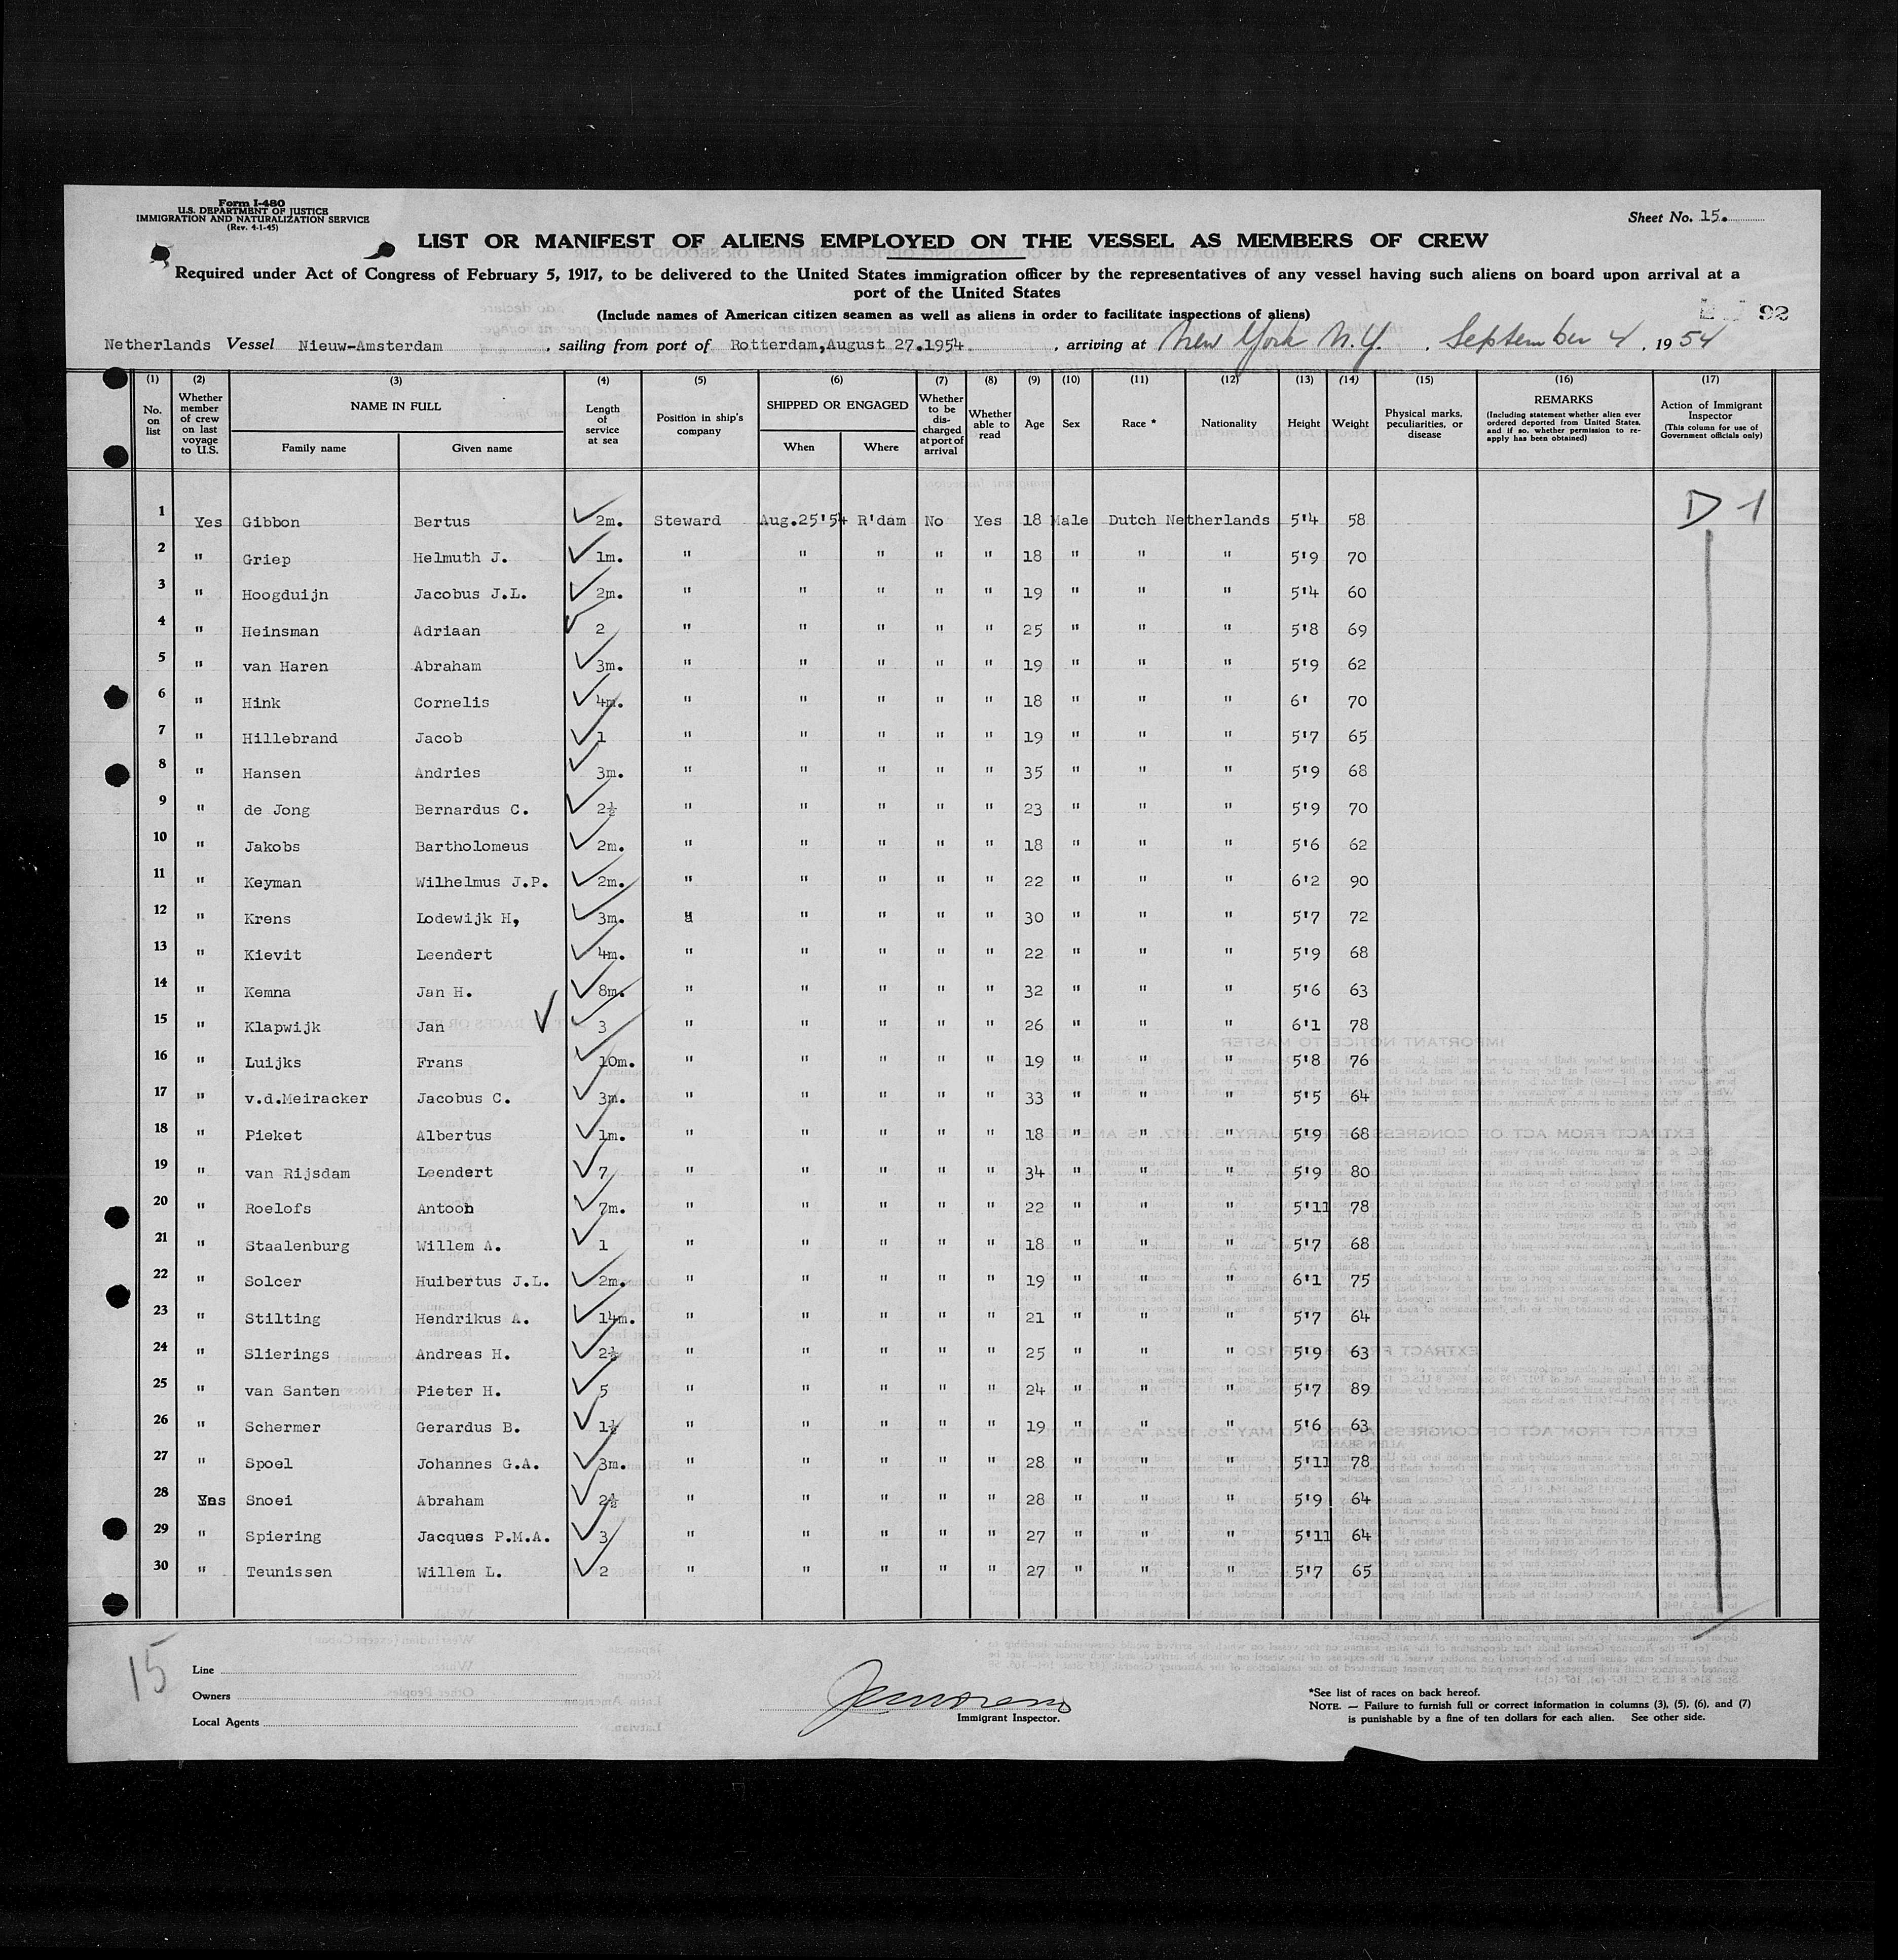 Form I-480
U.S. DEPARTMENT OF JUSTICE
IMMIGRATION AND NATURALIZATION SERVICE
(Rev. 4-1-45)
Sheet No. 15.
LIST OR MANIFEST OF ALIENS EMPLOYED ON THE VESSEL AS MEMBERS OF CREW
Required under Act of Congress of February 5, 1917, to be delivered to the United States immigration officer by the representatives of any vessel having such aliens on board upon arrival at a
port of the United States
(Include names of American citizen seamen as well as aliens in order to facilitate inspections of aliens)
92
Netherlands Vessel Nieuw-Amsterdam, sailing from port of Rotterdam, August 27.1954, arriving at New York N.Y., September 4, 1954
(1) (2) (3) (4) (5) (6) (7) (8) (9) (10) (11) (12) (13) (14) (15) (16) (17)
No. on list
Whether member of crew on last voyage to U.S.
NAME IN FULL
Family name
Given name
Length of service at sea
Position in ship's company
SHIPPED OR ENGAGED
When
Where
Whether to be discharged at port of arrival
Whether able to read
Age
Sex
Race *
Nationality
Height
Weight
Physical marks, peculiarities, or disease
REMARKS
(Including statement whether alien ever ordered deported from United States, and if so, whether permission to reapply has been obtained)
Action of Immigrant Inspector
(This column for use of Government officials only)
D-1
1 Yes Gibbon Bertus 2m. Steward Aug.25'54 R'dam No Yes 18 Male Dutch Netherlands 5'4 58
2 " Griep Helmuth J. 1m. " " " " " 18 " " " 5'9 70
3 " Hoogduijn Jacobus J.L. 2m. " " " " " 19 " " " 5'4 60
4 " Heinsman Adriaan 2 " " " " " 25 " " " 5'8 69
5 " van Haren Abraham 3m. " " " " " 19 " " " 5'9 62
6 " Hink Cornelis 4m. " " " " " 18 " " " 6' 70
7 " Hillebrand Jacob 1 " " " " " 19 " " " 5'7 65
8 " Hansen Andries 3m. " " " " " 35 " " " 5'9 68
9 " de Jong Bernardus C. 2½ " " " " " 23 " " " 5'9 70
10 " Jakobs Bartholomeus 2m. " " " " " 18 " " " 5'6 62
11 " Keyman Wilhelmus J.P. 2m. " " " " " 22 " " " 6'2 90
12 " Krens Lodewijk H, 3m. " " " " " 30 " " " 5'7 72
13 " Kievit Leendert 4m. " " " " " 22 " " " 5'9 68
14 " Kemna Jan H. 8m. " " " " " 32 " " " 5'6 63
15 " Klapwijk Jan 3 " " " " " 26 " " " 6'1 78
16 " Luijks Frans 10m. " " " " " 19 " " " 5'8 76
17 " v.d.Meiracker Jacobus C. 3m. " " " " " 33 " " " 5'5 64
18 " Pieket Albertus 1m. " " " " " 18 " " " 5'9 68
19 " van Rijsdam Leendert 7 " " " " " 34 " " " 5'9 80
20 " Roelofs Antoon 7m. " " " " " 22 " " " 5'11 78
21 " Staalenburg Willem A. 1 " " " " " 18 " " " 5'7 68
22 " Solcer Huibertus J.L. 2m. " " " " " 19 " " " 6'1 75
23 " Stilting Hendrikus A. 14m. " " " " " 21 " " " 5'7 64
24 " Slierings Andreas H. 2½ " " " " " 25 " " " 5'9 63
25 " van Santen Pieter H. 5 " " " " " 24 " " " 5'7 89
26 " Schermer Gerardus B. 1½ " " " " " 19 " " " 5'6 63
27 " Spoel Johannes G.A. 3m. " " " " " 28 " " " 5'11 78
28 Yes Snoei Abraham 2½ " " " " " 28 " " " 5'9 64
29 " Spiering Jacques P.M.A. 3 " " " " " 27 " " " 5'11 64
30 " Teunissen Willem L. 2 " " " " " 27 " " " 5'7 65
15
Line
Owners
Local Agents
Immigrant Inspector.
*See list of races on back hereof.
NOTE. — Failure to furnish full or correct information in columns (3), (5), (6), and (7)
is punishable by a fine of ten dollars for each alien. See other side.